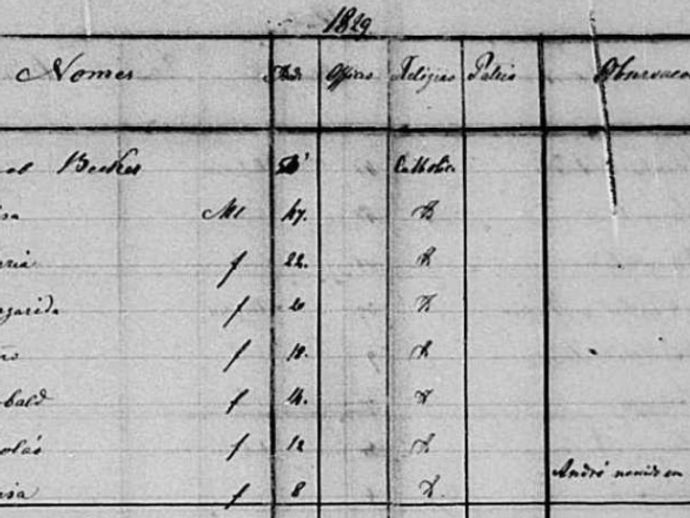 1829
Nomes Idade Officio Religião Patria Observaco
Becker Catholic
sa Mr 47.
ria f 22.
garida f 20
f 18.
bald f 14.
olás f 12
f 8
André nascido em